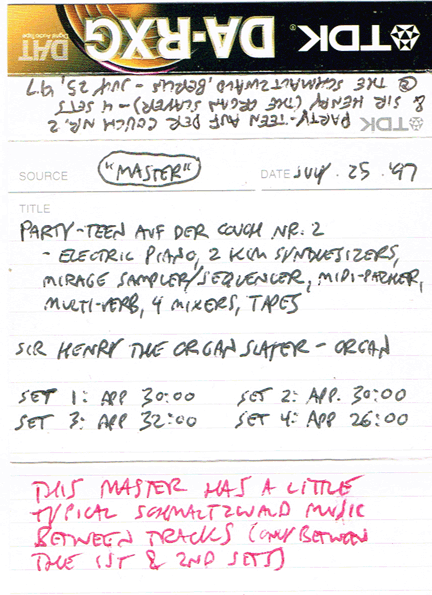 TDK DA-RXG DAT
Digital Audio Tape
TDK PARTY-TEEN AUF DER COUCH NR. 2
& SIR HENRY (THE ORGAN SLAYER) - 4 SETS
@ THE SCHMALTZWALD, BERLIN - JULY 25, 97
SOURCE "MASTER" DATE JULY . 25 . 97
TITLE
PARTY-TEEN AUF DER COUCH NR. 2
- ELECTRIC PIANO, 2 KIM SYNTHESIZERS,
MIRAGE SAMPLER/SEQUENCER, MIDI-PATCHER,
MULTI-VERB, 4 MIXERS, TAPES
SIR HENRY THE ORGAN SLAYER - ORGAN
SET 1: APP 30:00 SET 2: APP. 30:00
SET 3: APP 32:00 SET 4: APP 26:00
THIS MASTER HAS A LITTLE
TYPICAL SCHMALTZWALD MUSIC
BETWEEN TRACKS (ONLY BETWEEN
THE 1ST & 2ND SETS)